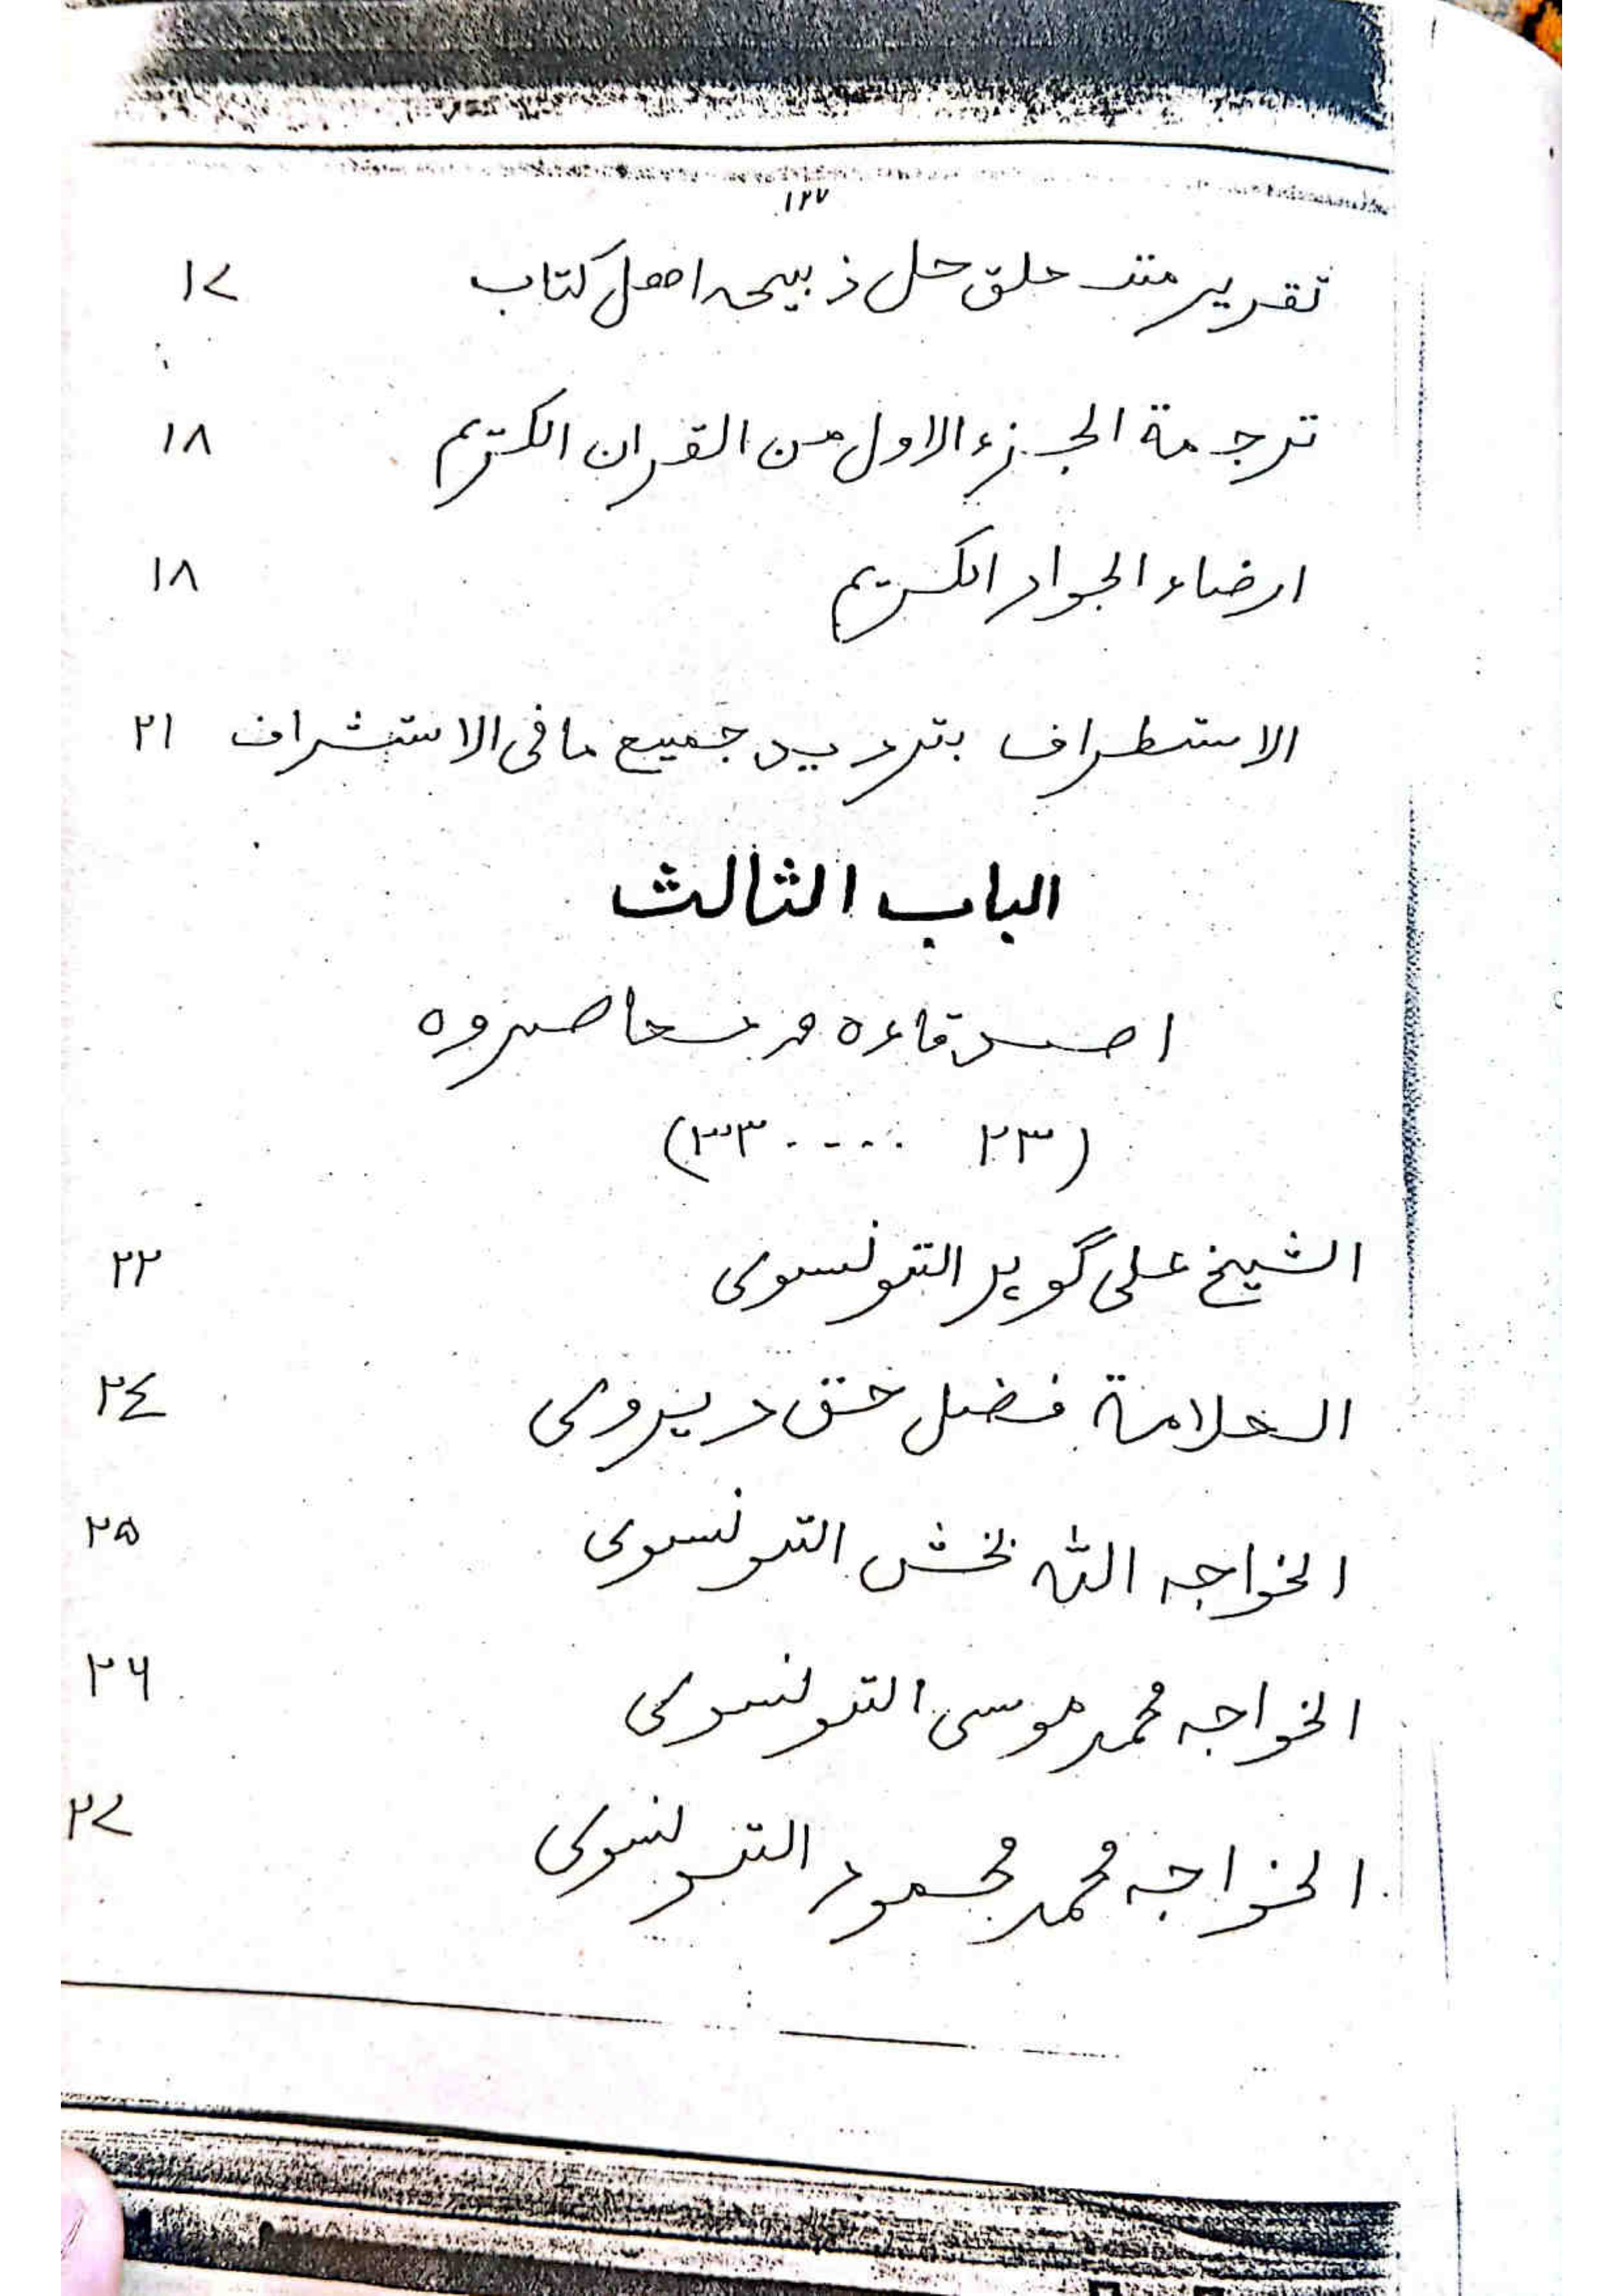 ١٢٧
تقرير متعلق حل ذبيحه اهل كتاب ١٧
ترجمة الجزء الاول من القران الكريم ١٨
ارضاء الجواد الكريم ١٨
الاستطراف بترديد جميع ما فى الاستشراف ٢١
الباب الثالث
اصدقاءه و معاصروه
(٢٣ ..... ٣٣)
الشيخ على گوہر التونسوى ٢٢
العلامة فضل حق ديروى ٢٤
الخواجه الله بخش التونسوى ٢٥
الخواجه محمد موسى التونسوى ٢٦
الخواجه محمد محمود التونسوى ٢٧